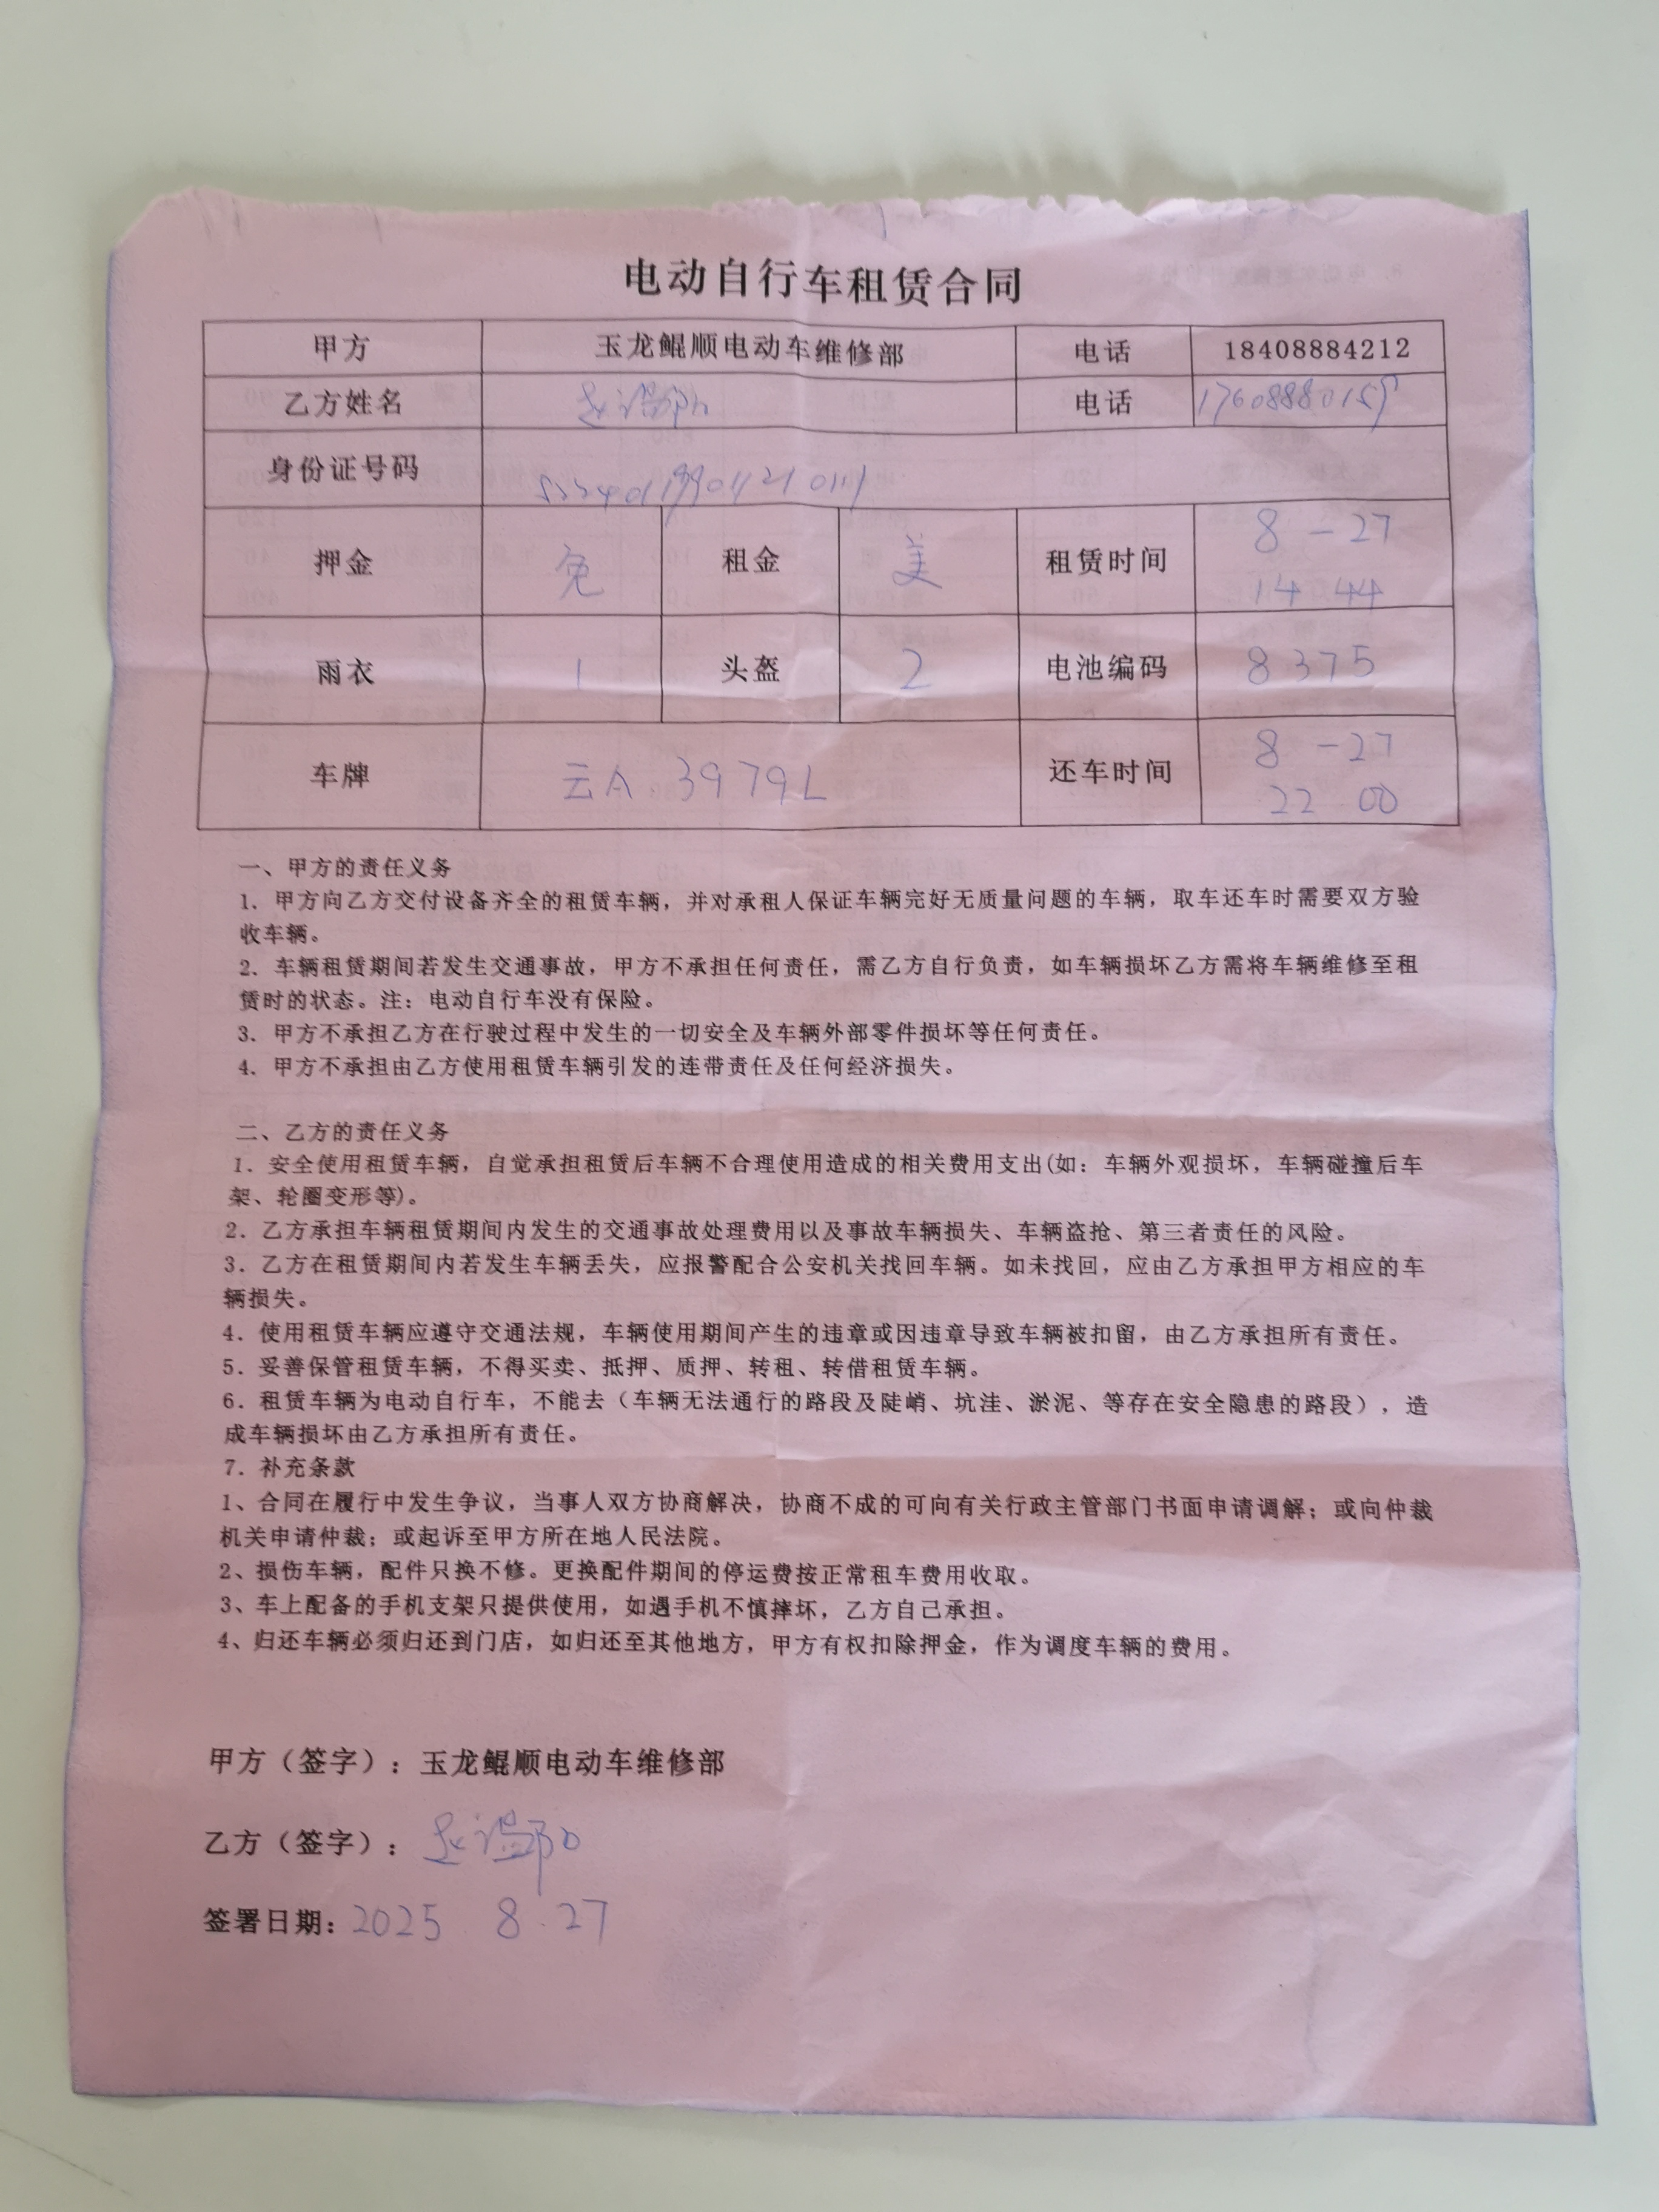 电动自行车租赁合同
甲方 玉龙鲲顺电动车维修部 电话 18408884212
乙方姓名 电话 17608880159
身份证号码
押金 免 租金 美 租赁时间 8-27 14 44
雨衣 1 头盔 2 电池编码 8375
车牌 云A.3979L 还车时间 8-27 22 00
一、甲方的责任义务
1. 甲方向乙方交付设备齐全的租赁车辆，并对承租人保证车辆完好无质量问题的车辆，取车还车时需要双方验
收车辆。
2. 车辆租赁期间若发生交通事故，甲方不承担任何责任，需乙方自行负责，如车辆损坏乙方需将车辆维修至租
赁时的状态。注：电动自行车没有保险。
3. 甲方不承担乙方在行驶过程中发生的一切安全及车辆外部零件损坏等任何责任。
4. 甲方不承担由乙方使用租赁车辆引发的连带责任及任何经济损失。
二、乙方的责任义务
1. 安全使用租赁车辆，自觉承担租赁后车辆不合理使用造成的相关费用支出(如：车辆外观损坏，车辆碰撞后车
架、轮圈变形等)。
2. 乙方承担车辆租赁期间内发生的交通事故处理费用以及事故车辆损失、车辆盗抢、第三者责任的风险。
3. 乙方在租赁期间内若发生车辆丢失，应报警配合公安机关找回车辆。如未找回，应由乙方承担甲方相应的车
辆损失。
4. 使用租赁车辆应遵守交通法规，车辆使用期间产生的违章或因违章导致车辆被扣留，由乙方承担所有责任。
5. 妥善保管租赁车辆，不得买卖、抵押、质押、转租、转借租赁车辆。
6. 租赁车辆为电动自行车，不能去（车辆无法通行的路段及陡峭、坑洼、淤泥、等存在安全隐患的路段），造
成车辆损坏由乙方承担所有责任。
7. 补充条款
1、合同在履行中发生争议，当事人双方协商解决，协商不成的可向有关行政主管部门书面申请调解；或向仲裁
机关申请仲裁；或起诉至甲方所在地人民法院。
2、损伤车辆，配件只换不修。更换配件期间的停运费按正常租车费用收取。
3、车上配备的手机支架只提供使用，如遇手机不慎摔坏，乙方自己承担。
4、归还车辆必须归还到门店，如归还至其他地方，甲方有权扣除押金，作为调度车辆的费用。
甲方（签字）：玉龙鲲顺电动车维修部
乙方（签字）：
签署日期：2025.8.27